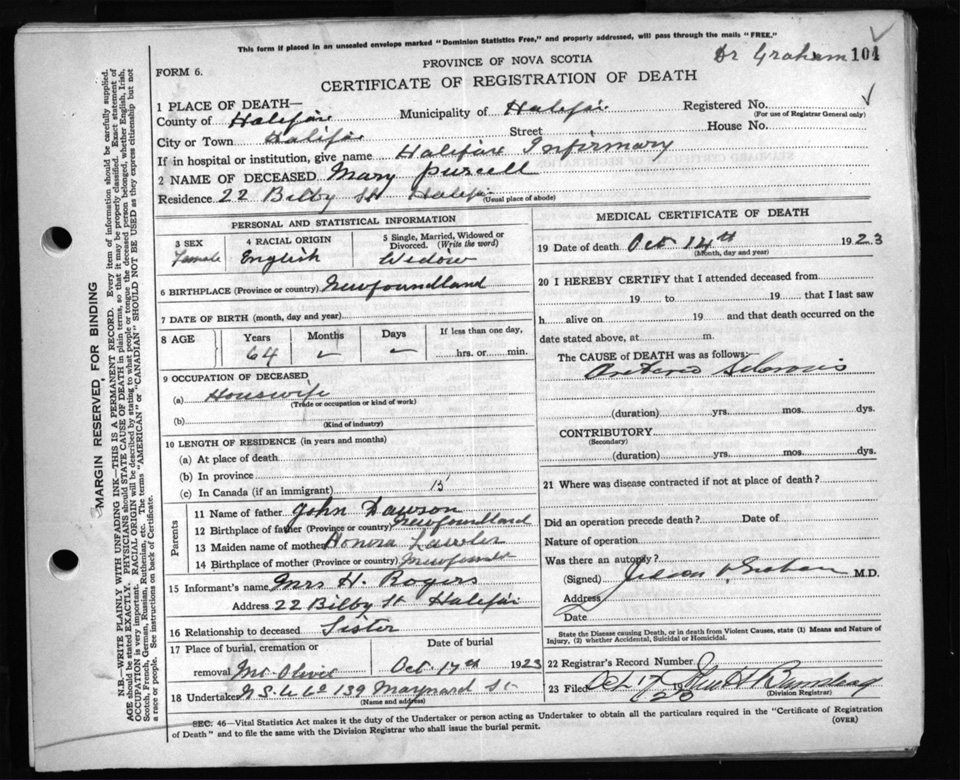 This form if placed in an unsealed envelope marked "Dominion Statistics Free," and properly addressed, will pass through the mails "FREE."
Dr Graham 104
PROVINCE OF NOVA SCOTIA
FORM 6.
CERTIFICATE OF REGISTRATION OF DEATH
1 PLACE OF DEATH—
County of Halifax Municipality of Halifax Registered No.
(For use of Registrar General only)
City or Town Halifax Street House No.
If in hospital or institution, give name Halifax Infirmary
2 NAME OF DECEASED Mary Purcell
Residence 22 Bilby St Halifax
(Usual place of abode)
PERSONAL AND STATISTICAL INFORMATION
3 SEX 4 RACIAL ORIGIN 5 Single, Married, Widowed or Divorced. (Write the word)
Female English Widow
6 BIRTHPLACE (Province or country) Newfoundland
7 DATE OF BIRTH (month, day and year)
8 AGE Years Months Days If less than one day,
64 hrs. or min.
9 OCCUPATION OF DECEASED
(a) Houswife
(Trade or occupation or kind of work)
(b)
(Kind of industry)
10 LENGTH OF RESIDENCE (in years and months)
(a) At place of death
(b) In province
(c) In Canada (if an immigrant) 15
Parents
11 Name of father John Dawson
12 Birthplace of father (Province or country) Newfoundland
13 Maiden name of mother Honora Lawler
14 Birthplace of mother (Province or country) Newfound
15 Informant's name Mrs H. Rogers
Address 22 Bilby St Halifax
16 Relationship to deceased Sister
17 Place of burial, cremation or Date of burial
removal Mt Olivet Oct 17th 1923
18 Undertaker N S U Co 139 Maynard St
(Name and address)
MEDICAL CERTIFICATE OF DEATH
19 Date of death Oct 14th 1923
(Month, day and year)
20 I HEREBY CERTIFY that I attended deceased from
19 to 19 that I last saw
h alive on 19 and that death occurred on the
date stated above, at m.
The CAUSE of DEATH was as follows:
Sclerosis
(duration) yrs. mos. dys.
CONTRIBUTORY
(Secondary)
(duration) yrs. mos. dys.
21 Where was disease contracted if not at place of death?
Did an operation precede death? Date of
Nature of operation
Was there an autopsy?
(Signed) Graham M.D.
Address
Date
State the Disease causing Death, or in death from Violent Causes, state (1) Means and Nature of
Injury, (2) whether Accidental, Suicidal or Homicidal.
22 Registrar's Record Number
23 Filed Oct 17 19
(Division Registrar)
SEC. 46—Vital Statistics Act makes it the duty of the Undertaker or person acting as Undertaker to obtain all the particulars required in the "Certificate of Registration
of Death" and to file the same with the Division Registrar who shall issue the burial permit. (OVER)
MARGIN RESERVED FOR BINDING
N.B.—WRITE PLAINLY WITH UNFADING INK—THIS IS A PERMANENT RECORD. Every item of information should be carefully supplied.
AGE should be stated EXACTLY. PHYSICIANS should STATE CAUSE OF DEATH in plain terms, so that it may be properly classified. Exact statement of
OCCUPATION is very important. RACIAL ORIGIN will be described by stating to what people or tongue the deceased person belonged, whether English, Irish,
Scotch, French, German, Russian, Ruthenian, etc. The terms "AMERICAN" or "CANADIAN" SHOULD NOT BE USED as they express citizenship but not
a race or people. See instructions on back of Certificate.